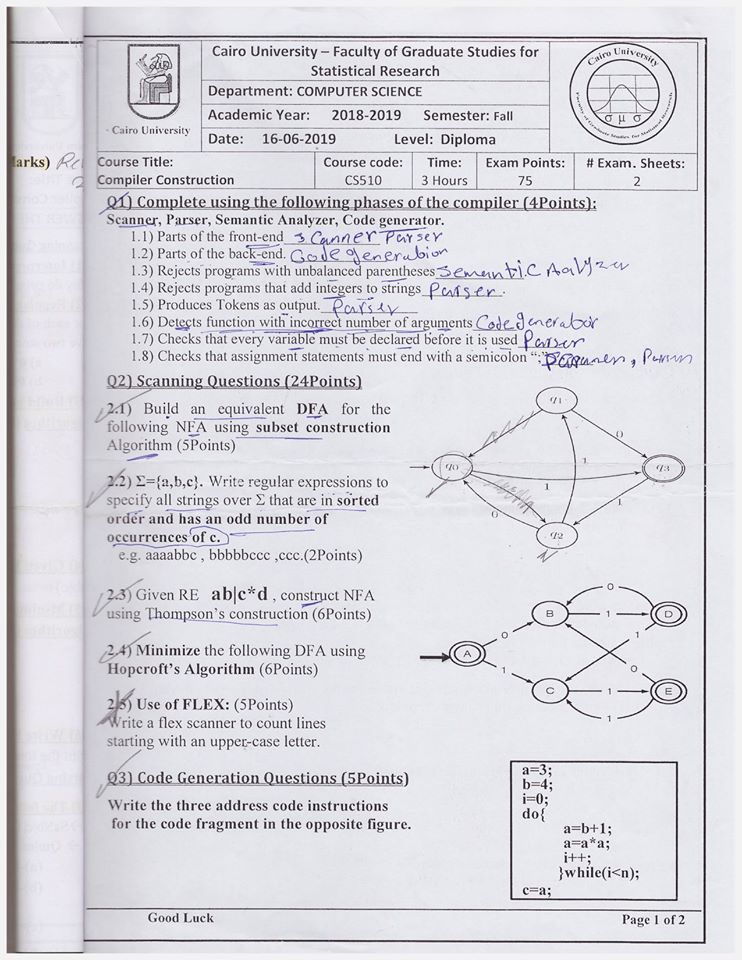 Cairo University – Faculty of Graduate Studies for
Statistical Research
Department: COMPUTER SCIENCE
Academic Year: 2018-2019 Semester: Fall
Date: 16-06-2019 Level: Diploma
Cairo University
Cairo University
Faculty of Graduate Studies for Statistical Research
σ μ σ
arks)
Course Title:
Compiler Construction
Course code:
CS510
Time:
3 Hours
Exam Points:
75
# Exam. Sheets:
2
Q1) Complete using the following phases of the compiler (4Points):
Scanner, Parser, Semantic Analyzer, Code generator.
1.1) Parts of the front-end Scanner Parser
1.2) Parts of the back-end. Code generation
1.3) Rejects programs with unbalanced parentheses Semantic Aalyzer
1.4) Rejects programs that add integers to strings Parser.
1.5) Produces Tokens as output. Parser
1.6) Detects function with incorrect number of arguments Code generator
1.7) Checks that every variable must be declared before it is used Parser
1.8) Checks that assignment statements must end with a semicolon ";"
Q2) Scanning Questions (24Points)
2.1) Build an equivalent DFA for the
following NFA using subset construction
Algorithm (5Points)
q1
0
q0
1
1
q3
6
1
q2
2.2) Σ={a,b,c}. Write regular expressions to
specify all strings over Σ that are in sorted
order and has an odd number of
occurrences of c.
e.g. aaaabbc , bbbbbccc ,ccc.(2Points)
2.3) Given RE ab|c*d , construct NFA
using Thompson's construction (6Points)
2.4) Minimize the following DFA using
Hopcroft's Algorithm (6Points)
0
B
1
D
0
1
A
1
0
C
1
E
1
2.5) Use of FLEX: (5Points)
Write a flex scanner to count lines
starting with an upper-case letter.
Q3) Code Generation Questions (5Points)
Write the three address code instructions
for the code fragment in the opposite figure.
a=3;
b=4;
i=0;
do{
a=b+1;
a=a*a;
i++;
}while(i<n);
c=a;
Good Luck
Page 1 of 2